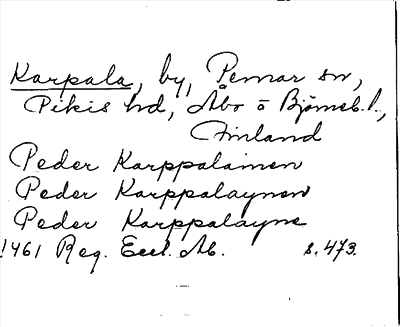 Karpala, by, Pemar sn,
Pikis hd, Åbo o Björneb. l.,
Finland
Peder Karppalainen
Peder Karppalaynen
Peder Karppalayne
1461 Reg. Eccl. Ab. s. 473.